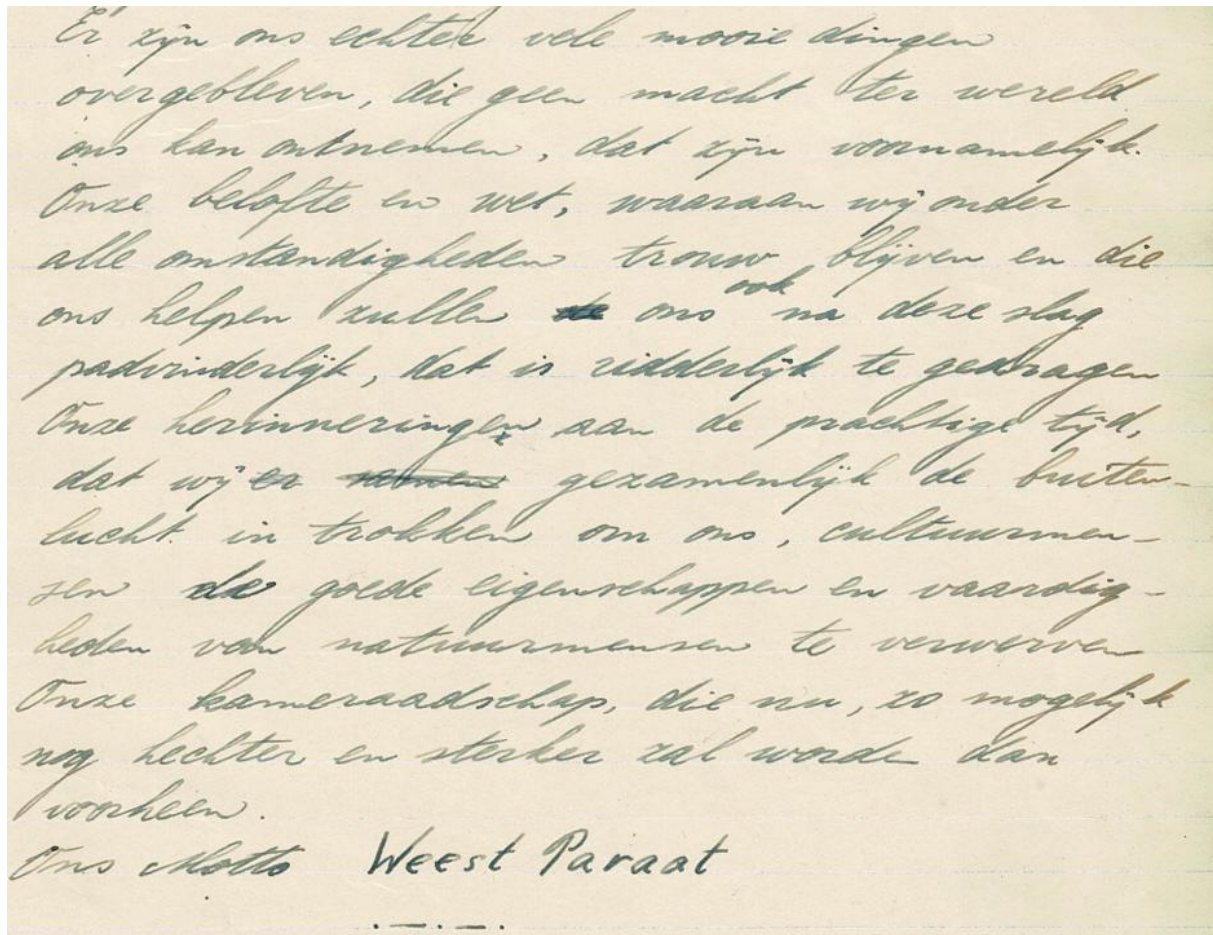 Er zijn ons echter vele mooie dingen
overgebleven, die geen macht ter wereld
ons kan ontnemen, dat zijn voornamelijk.
Onze belofte en wet, waaraan wij onder
alle omstandigheden trouw blijven en die
ons helpen zullen de ons ook na deze slag
padvinderlijk, dat is ridderlijk te gedragen
Onze herinneringen aan de prachtige tijd,
dat wij er samen gezamenlijk de buiten-
lucht in trokken om ons, cultuurmen-
sen de goede eigenschappen en vaardig-
heden van natuurmensen te verwerven
Onze kameraadschap, die nu, zo mogelijk
nog hechter en sterker zal worden dan
voorheen.
Ons Motto Weest Paraat
. — . — .